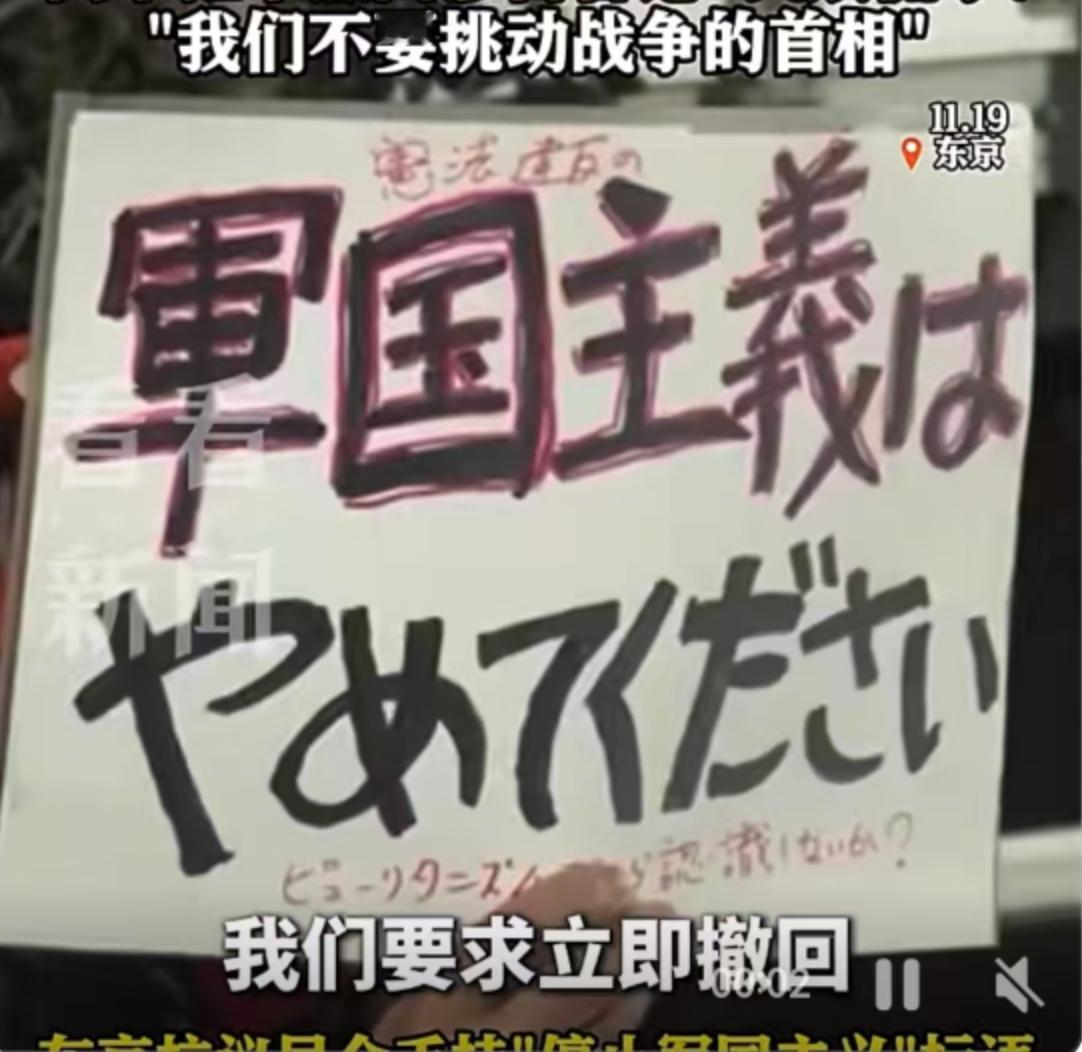 "我们不要挑动战争的首相"
11.19
东京
憲法違反の
軍国主義は
やめてください
看看
新闻
ピューリタニズム
認識しないか?
我们要求立即撤回
00:02
"停止军国主义"标语